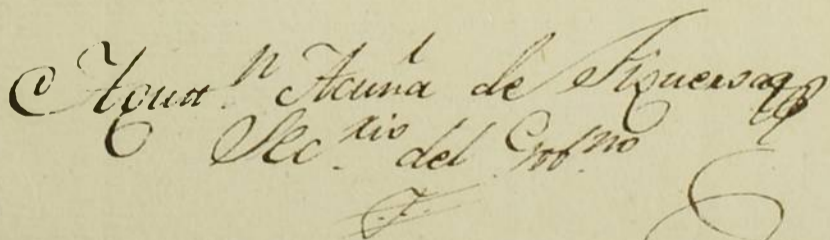 Agust.n Acuña de Figueroa
Sec.rio del Gob.no